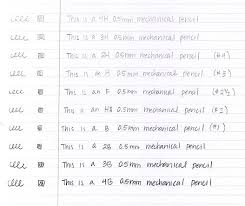 This is a 4H 0.5mm mechanical pencil
This is a 3H 0.5mm mechanical pencil
This is a 2H 0.5mm mechanical pencil (#4)
This is an H 0.5mm mechanical pencil (#3)
This is an F 0.5mm mechanical pencil (#2½)
This is an HB 0.5mm mechanical pencil (#2)
This is a B 0.5mm mechanical pencil (#1)
This is a 2B 0.5mm mechanical pencil
This is a 3B 0.5mm mechanical pencil
This is a 4B 0.5mm mechanical pencil